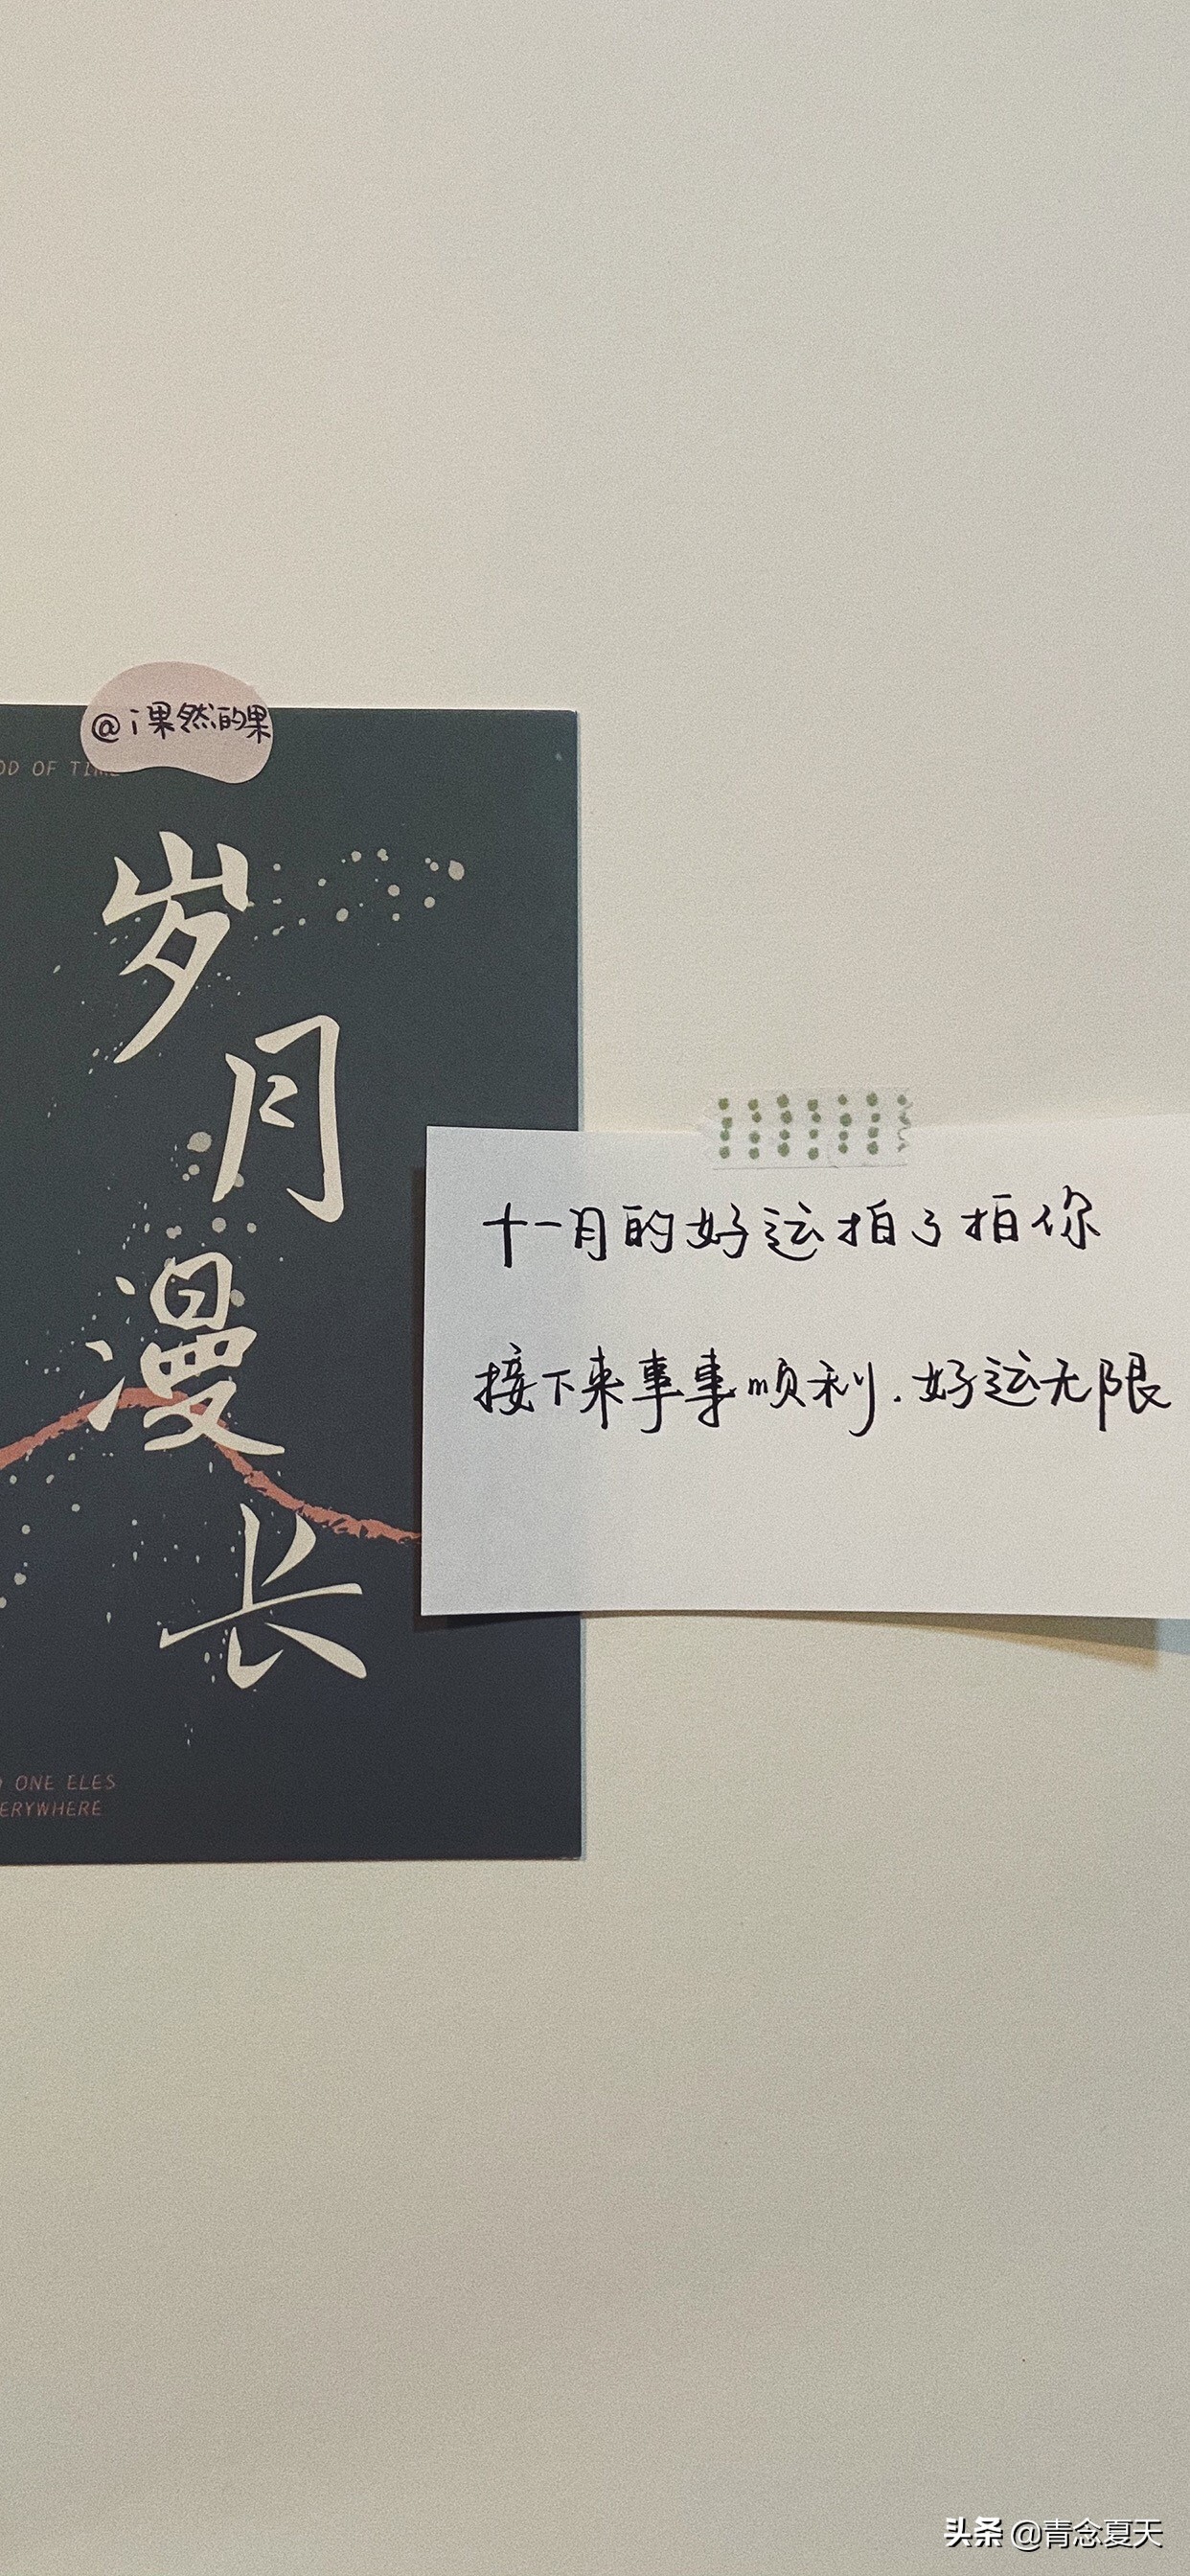 @i果然的果
OD OF TIME
岁月漫长
十一月的好运拍了拍你
接下来事事顺利.好运无限
ONE ELES
ERYWHERE
头条 @青念夏天